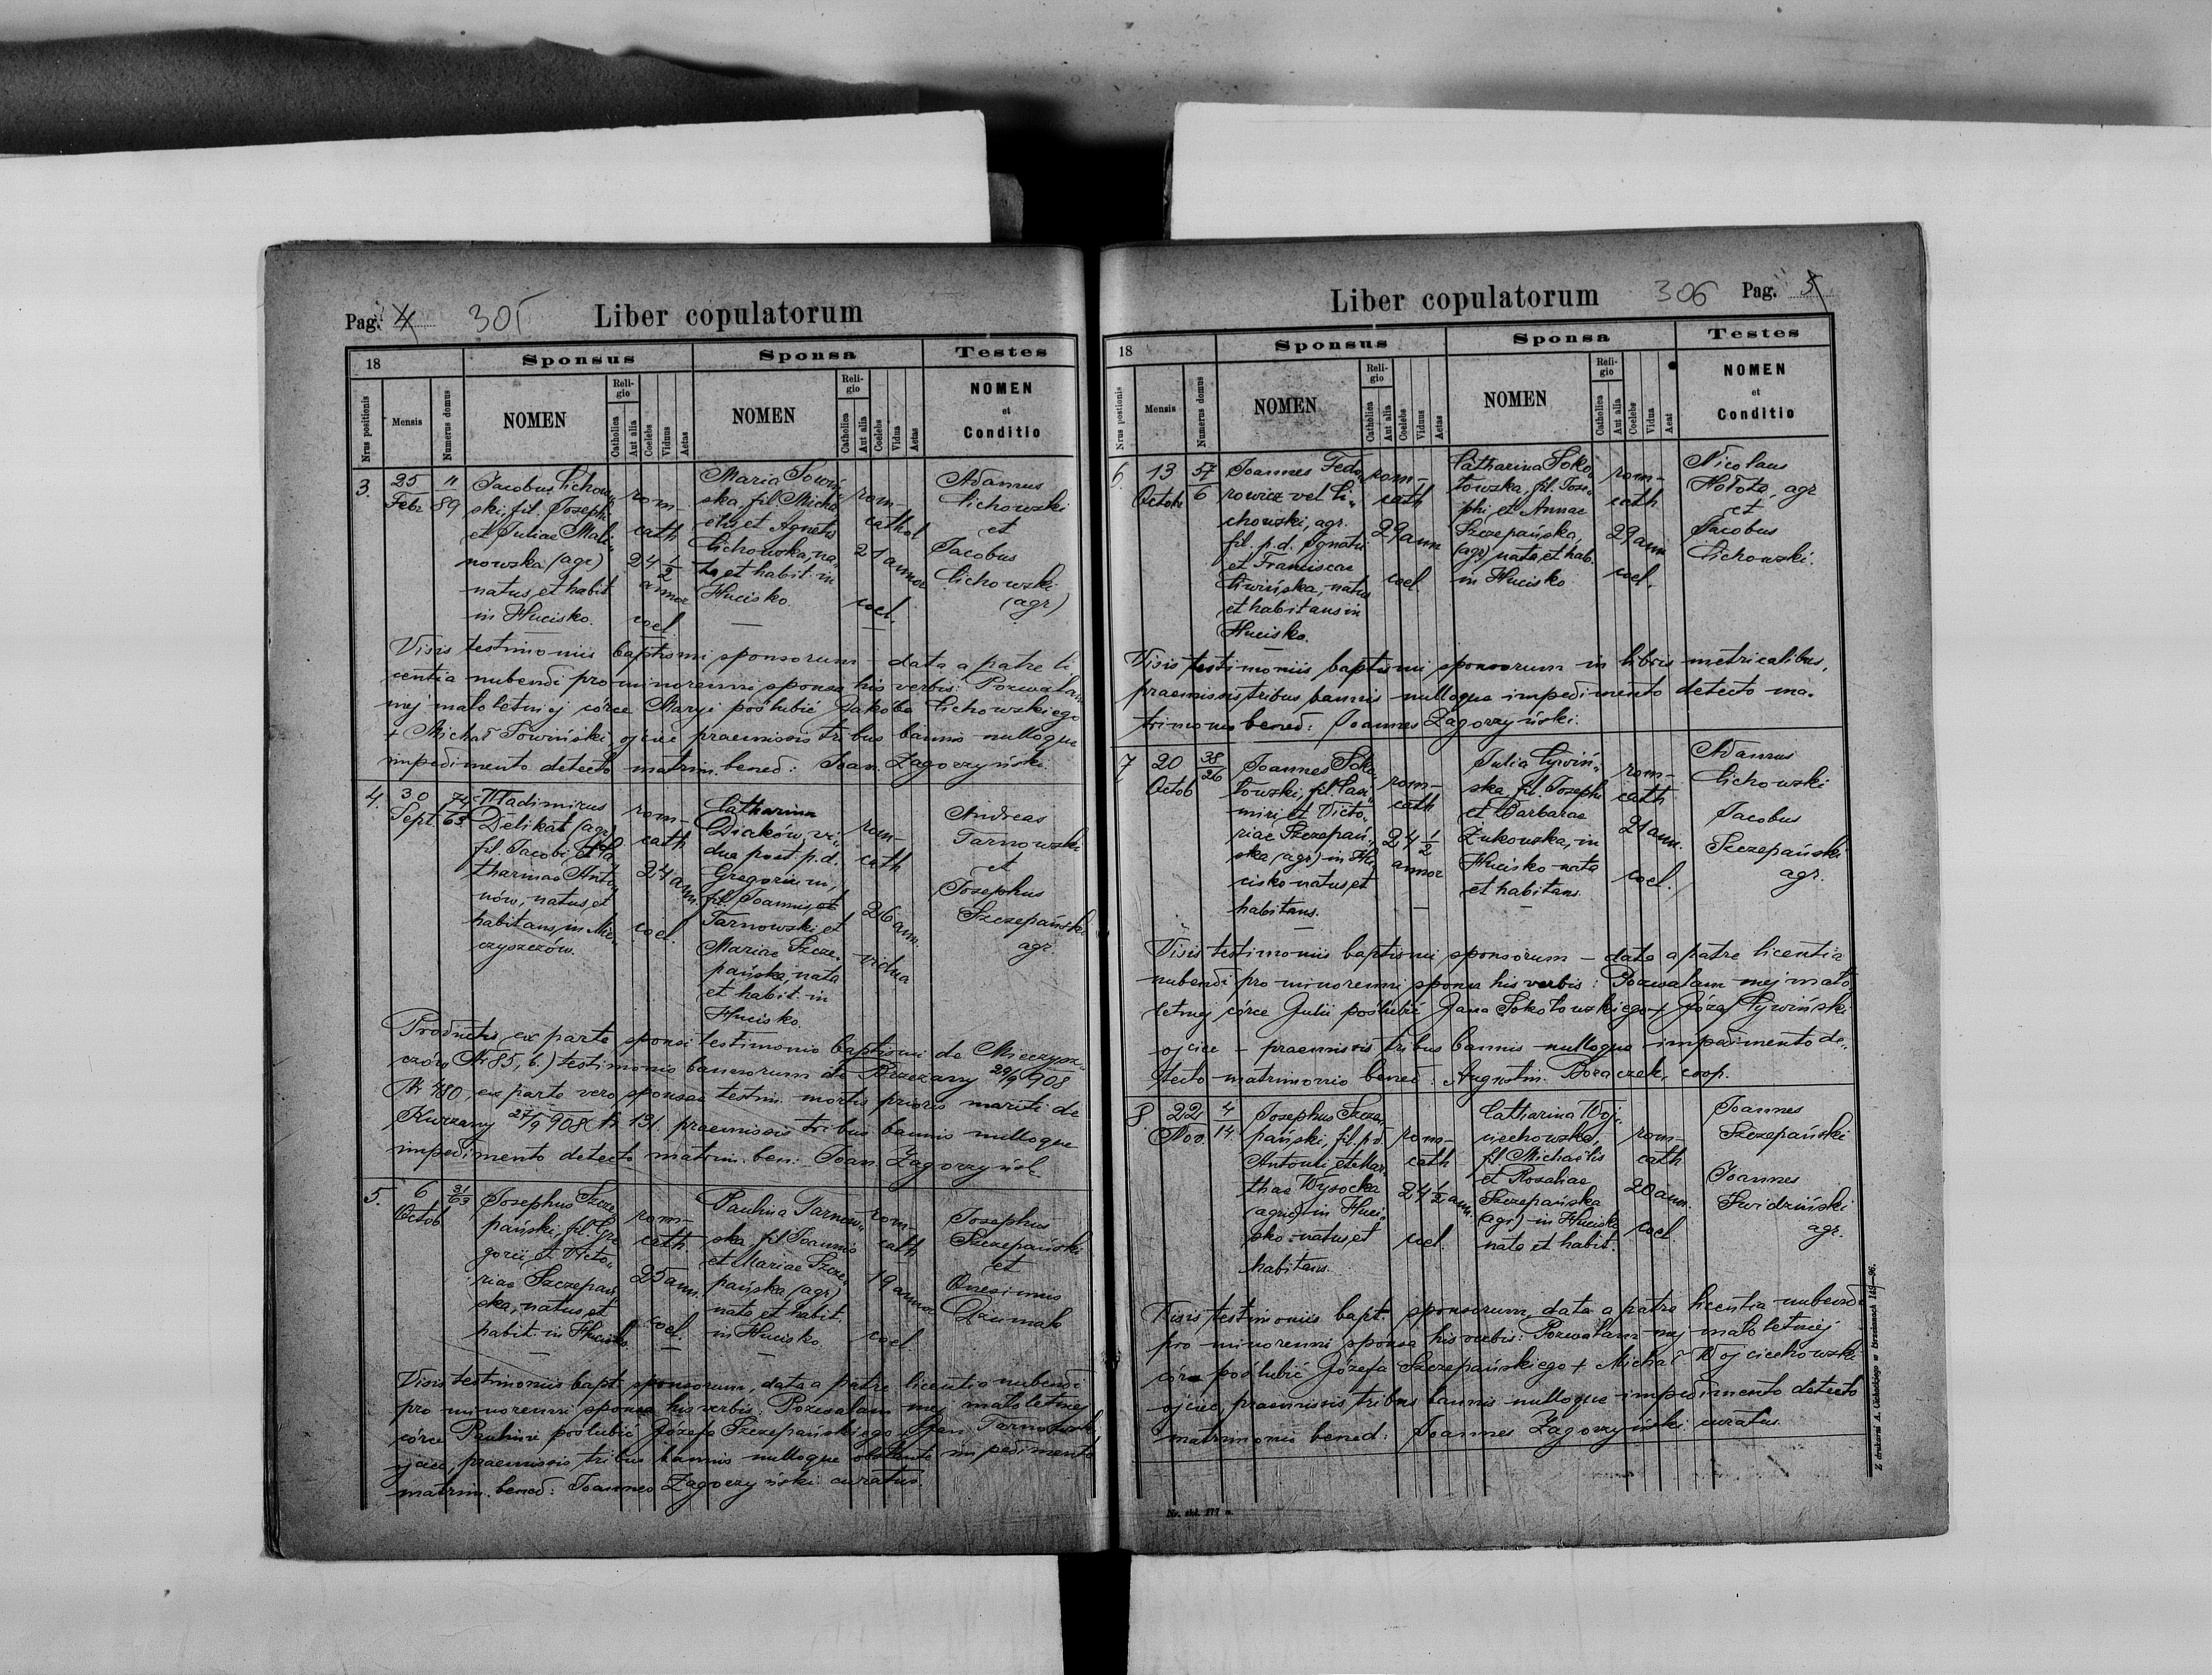 Pag. 4 305 Liber copulatorum
18 Sponsus Sponsa Testes
Nrus positionis Mensis Numerus domus NOMEN Religio Catholica Aut alia Coelebs Viduus Aetas NOMEN Religio Catholica Aut alia Coelebs Vidua Aetas NOMEN et Conditio
3. 25 Febr 11 89
Jacobus Cichow
ski, fil. Josephi
et Juliae Mali
nowska (agr)
natus, et habit.
in Hucisko.
rom-
cath
24 1/2
annor
coel.
Maria Sowiń
ska, fil. Micha
elis et Agnetis
Cichowska, na
ta, et habit. in
Hucisko.
rom-
cathol
21 annor
coel.
Adamus
Cichowski
et
Jacobus
Cichowski
(agr)
Visis testimoniis baptismi sponsorum – data a patre li
centia nubendi pro minorenni sponsa his verbis: Pozwalam
mej małoletniej córce Maryi poślubić Jakóba Cichowskiego
+ Michał Sowiński ojciec praemissis tribus bannis nulloque
impedimento detecto matrim. bened: Joan. Zagorzyński.
4. 30 Sept. 74 63
Wladimirus
Delikat (agr)
fil. Jacobi et Ca
tharinae Anto
nów, natus et
habitans, in Mie
czyszczów.
rom-
cath
24 am.
coel.
Catharina
Diaków, vi
dua post p.d.
Gregorium,
fil. Joannis et
Tarnowski et
Mariae Szcze
pańska, nata
et habit. in
Hucisko.
rom-
cath
26 ann.
vidua
Andreas
Tarnowski
et
Josephus
Szczepański
agr.
Productis ex parte sponsi testimonio baptismi de Mieczysz
czów (Nr 85, b.) testimonio bannorum de Brzeżany 29/9 908
Nr 480, ex parte vero sponsae testim. mortis prioris mariti de
Kurzany 27/9 908 Nr 131. praemissis tribus bannis nulloque
impedimento detecto matrim. ben: Joan. Zagorzyńsk
5. 6 Octob 31 63
Josephus Szcze
pański, fil. Gre
gorii, et Victo
riae Szczepań
ska, natus et
habit. in Hucisko.
rom-
cath
25 ann.
coel.
Paulina Tarnow
ska fil. Joannis
et Mariae Szcze
pańska (agr)
nata et habit.
in Hucisko
rom-
cath
19 annor
coel.
Josephus
Szczepański
et
Onesimus
Dziumak
Visis testimoniis bapt. sponsorum, data a patre licentia nubendi
pro minorenni sponsa his verbis: Pozwalam mej małoletniej
córce Paulinie poślubić Józefa Szczepańskiego + Jan Tarnowski
ojciec, praemissis tribus bannis nulloque obstante impedimento
matrim. bened: Joannes Zagorzyński curatus.
Liber copulatorum 306 Pag. 5
18 Sponsus Sponsa Testes
Nrus postionis Mensis Numerus domus NOMEN Religio Catholica Aut alia Coelebs Viduus Aetas NOMEN Religio Catholica Aut alia Coelebs Vidua Aeat NOMEN et Conditio
6. 13 Octobr 57 6
Joannes Fedo
rowicz vel Ci
chowski, agr.
fil. p.d. Ignatii
et Franciscae
Ciwińska, natus
et habitans in
Hucisko.
rom-
cath
29 ann
coel.
Catharina Soko
łowska, fil. Jose
phi et Annae
Szczepańska,
(agr) nata et hab.
in Hucisko
rom-
cath
29 ann
coel.
Nicolaus
Hołota, agr
et
Jacobus
Cichowski.
Visis testimoniis baptismi sponsorum in libris metricalibus,
praemissis tribus bannis nulloque impedimento detecto ma-
trimonio bened: Joannes Zagorzyński.
7 20 Octob 38 26
Joannes Soko
łowski, fil. Casi
miri et Victo
riae Szczepań
ska (agr) in Hu
cisko natus, et
habitans.
rom-
cath
24 1/2
annor
Julia Cywiń
ska, fil. Josephi
et Barbarae
Żukowska, in
Hucisko nata
et habitans.
rom-
cath
21 ann.
coel.
Adamus
Cichowski
Jacobus
Szczepański
agr.
Visis testimoniis baptismi sponsorum – data a patre licentia
nubendi pro minorenni sponsa his verbis: Pozwalam mej mało
letniej córce Julii poślubić Jana Sokołowskiego + Józef Cywiński
ojciec – praemissis tribus bannis nulloque impedimento de
tecto matrimonio bened: Augustin. Boraczek, coop.
8. 22 Nov. 4 14
Josephus Szcze
pański, fil. p.d.
Antonii, et Mar
thae Wysocka
(agric) in Huci
sko natus, et
habitans.
rom-
cath
24 1/2 am.
coel.
Catharina Woj
ciechowska,
fil Michaëlis
et Rosaliae
Szczepańska
(agr) in Hucisko
nata et habit.
rom-
cath
20 ann.
coel.
Joannes
Szczepański
Joannes
Swidziński
agr.
Visis testimoniis bapt. sponsorum, data a patre licentia nubendi
pro minorenni sponsa his verbis: Pozwalam mej małoletniej
córce poślubić Józefa Szczepańskiego + Michał Wojciechowski
ojciec, praemissis tribus bannis nulloque impedimento detecto
matrimonio bened: Joannes Zagorzyński curatus.